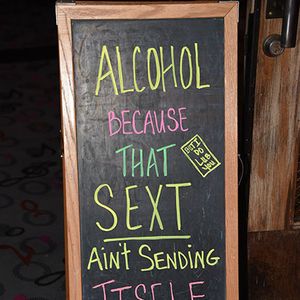 ALCOHOL
BECAUSE
THAT
BUT I
DO
LUB
YOU
SEXT
AIN'T SENDING
ITSELF